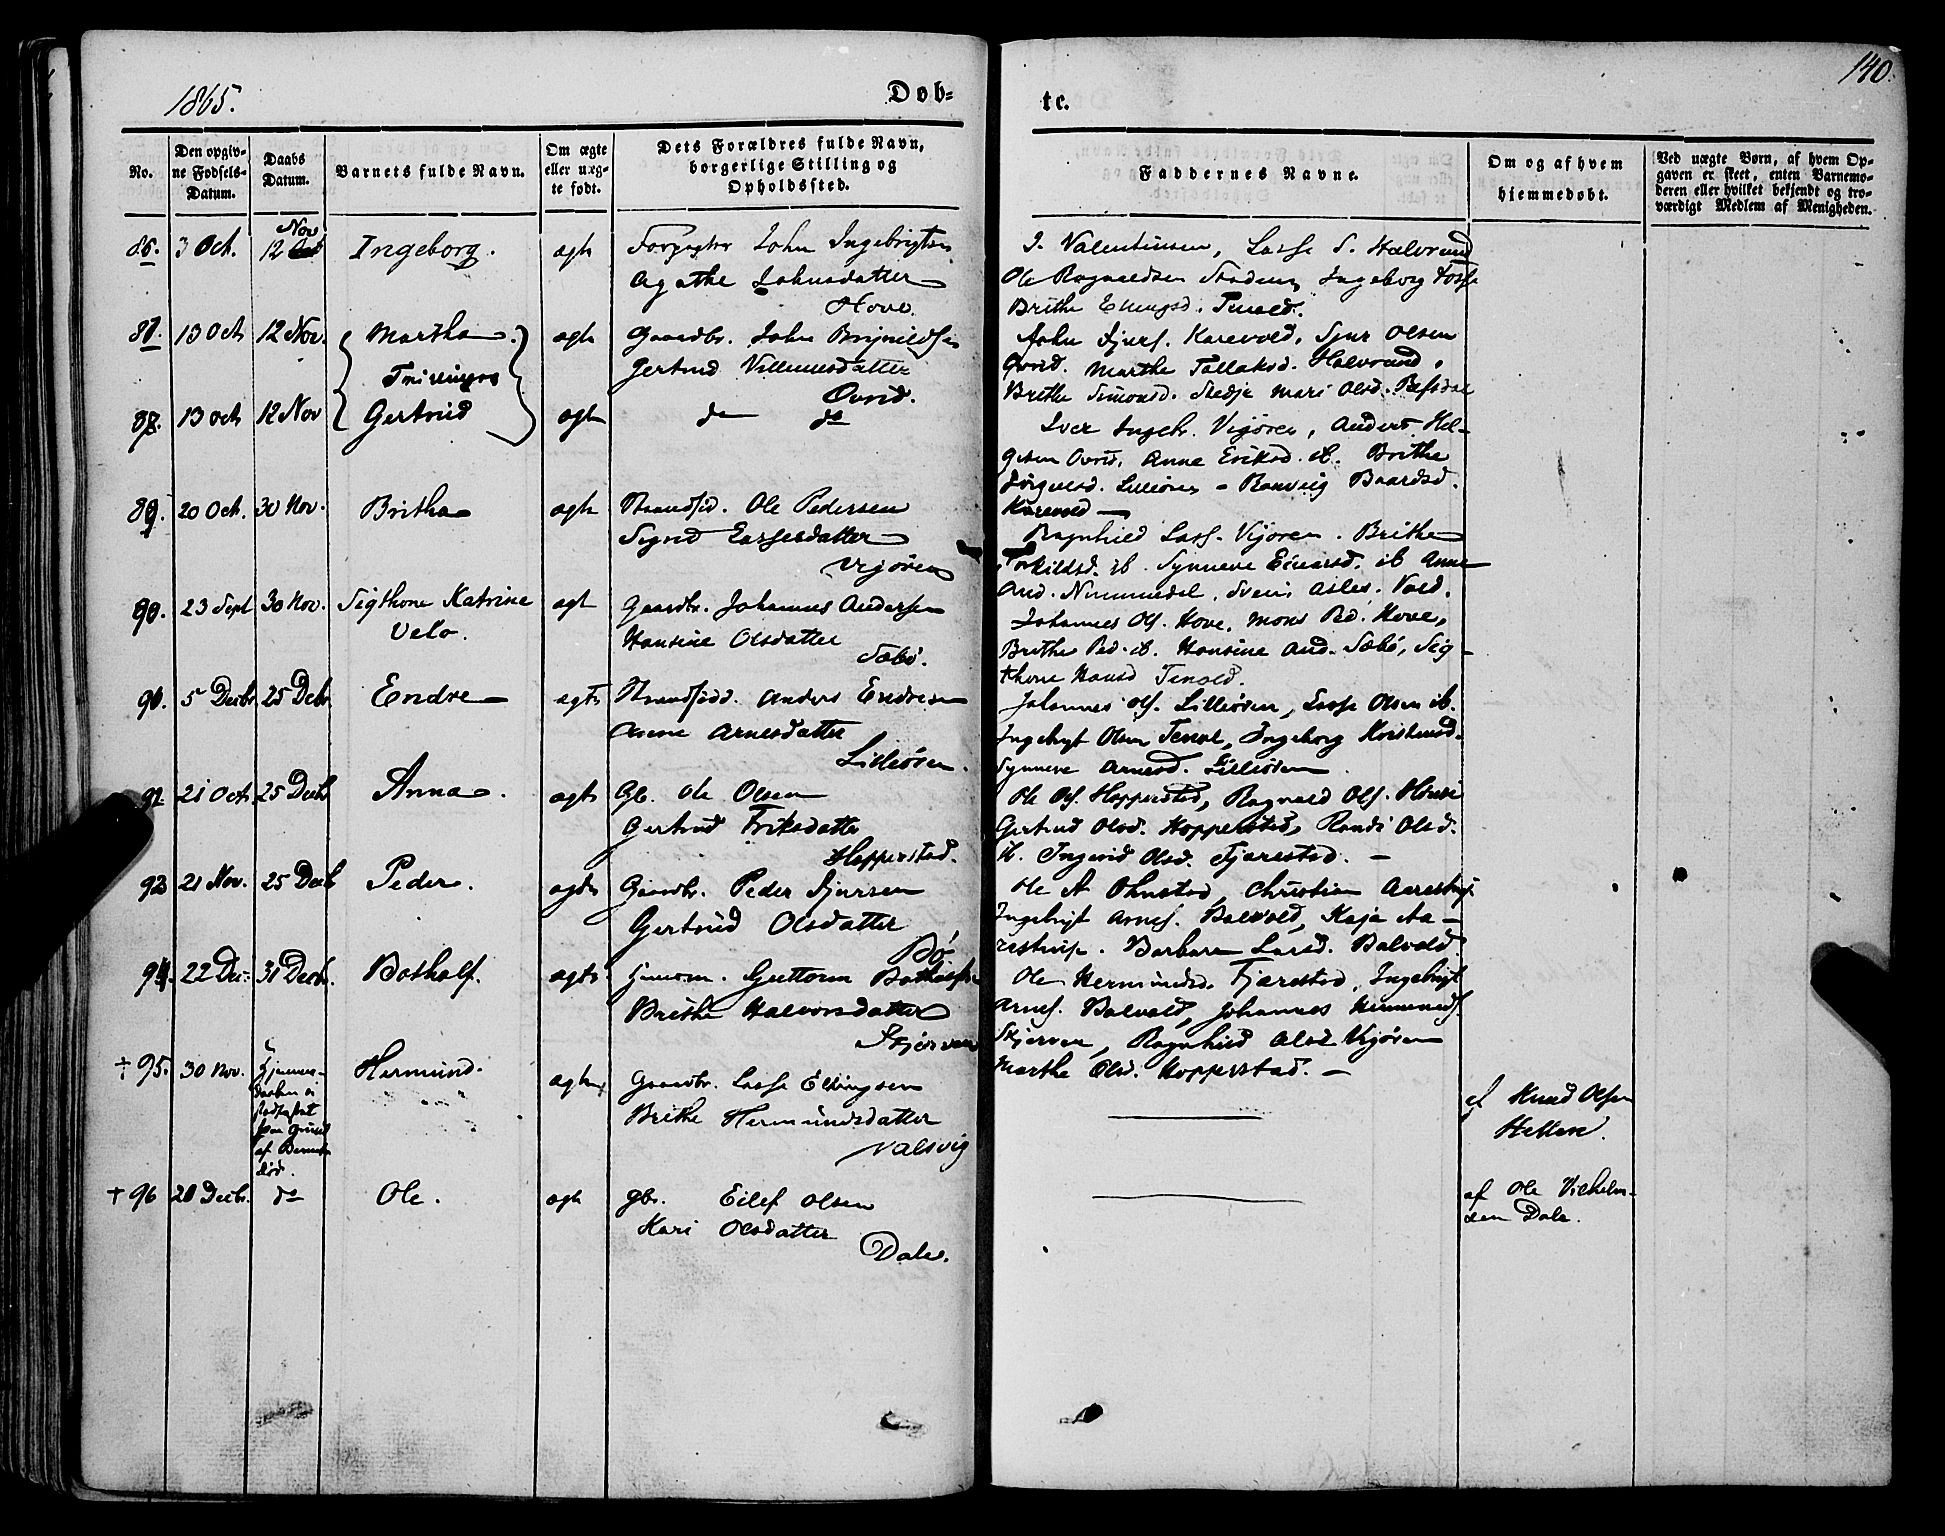 1865.
Døb-
te.
140.
No.
Den opgiv-
ne Fødsels-
Datum.
Daabs
Datum.
Barnets fulde Navn.
Om ægte
eller uæg-
te født.
Dets Forældres fulde Navn,
borgerlige Stilling og
Opholdssted.
Faddernes Navne.
Om og af hvem
hjemmedøbt.
Ved uægte Børn, af hvem Op-
gaven er skeet, enten Barnemo-
deren eller hvilket bekjendt og tro-
værdigt Medlem af Menigheden.
86. 3 Oct. 12 Nov Ingeborg. ægte Forpagter John Ingebrigtsen
Agathe Johnsdatter
Hove.
J. Valentinsen, Lasse S. Halvrund
Ole Ragnvaldsen Ingeborg Fosse
Brithe Ellingsd. Tenold.
87. 13 Oct 12 Nov. Martha. ægte Gaardbr. John Brynildsen
Tvillinger
Gertrud Villumsdatter
Ovrid.
John Sjurs. Karevold, Sjur Olsen
Ovrid. Marthe Tallaksd. Halvrund,
Brithe Simonsd. Stedje Mari Olsd. Refsdal
88. 13 Oct 12 Nov Gertrud ægte do do
Iver Ingebr. Vigøren, Anders Hel-
gesen Ovrid, Anne Eriksd. ib. Brithe
Lilleøren - Ranveig Baardsd.
Karevold -
89. 20 Oct. 30 Nov. Britha ægte Strandsid. Ole Pedersen
Sigrid Lassesdatter
Vigøren
Ragnhild Lass. Vigøren. Brithe
Torkildsd. ib. Synneve Einarsd. ib Anne
And. Nummedal, Svein Asles. Vold.
90. 23 Sept 30 Nov. Sigthone Katrine
Velo.
ægt Gaardbr. Johannes Andersen
Hansine Olsdatter
Sæbø.
Johannes Ols. Hove, Mons Ped. Hove,
Brithe Ped. ib. Hansine And. Sæbø, Sig-
thone Hansd Tenold.
91. 5 Decbr. 25 Decbr. Endre ægte Strandsidd. Anders Endresen
Anne Arnesdatter
Lilleøren.
Johannes Ols. Lilleøren, Lasse Olsen ib.
Ingebrigt Olsen Tenol, Ingeborg Kristensd.
Synneve Arnesd. Lilleøren
92. 21 Oct. 25 Decbr Anna. ægte Gb. Ole Olsen
Gertrud Eriksdatter
Hopperstad.
Ole Ols. Hopperstad, Ragnvald Ols. Huse
Gertrud Olsd. Hopperstad, Randi Olsd.
ib. Ingerid Olsd. Fjærestad. -
93 21 Nov. 25 Decb Peder. ægte Gaardbr. Peder Sjursen
Gertrud Olsdatter
Bø
Ole A Ohnstad, Christian Aarestrup
Ingebrigt Arnes. Balvold, Kaja Aa-
restrup. Barbara Larsd. Balvold.
94. 22 Dec. 31 Decbr. Botholf. ægte Huusm. Guttorm Botholfsen
Brithe Halvorsdatter
Skjerven
Ole Hermunds. Fjærestad, Ingebrigt
Arnes. Balvold, Johannes Hermunds.
Skjerven, Ragnhild Olsd Vigøren
Marthe Olsd. Hopperstad. -
† 95. 30 Nov. Hjemme-
daaben ei
stadfæstet
paa Grund
af Barnets
Død.
Hermund. ægte Gaardbr. Lasse Ellingsen
Brithe Hermundsdatter
Valsvig
af Knud Olsen
Hellene.
† 96 20 Decbr. do Ole. ægte gbr. Eilef Olsen
Kari Olsdatter
Dale.
af Ole Vilhelm-
sen Dale.